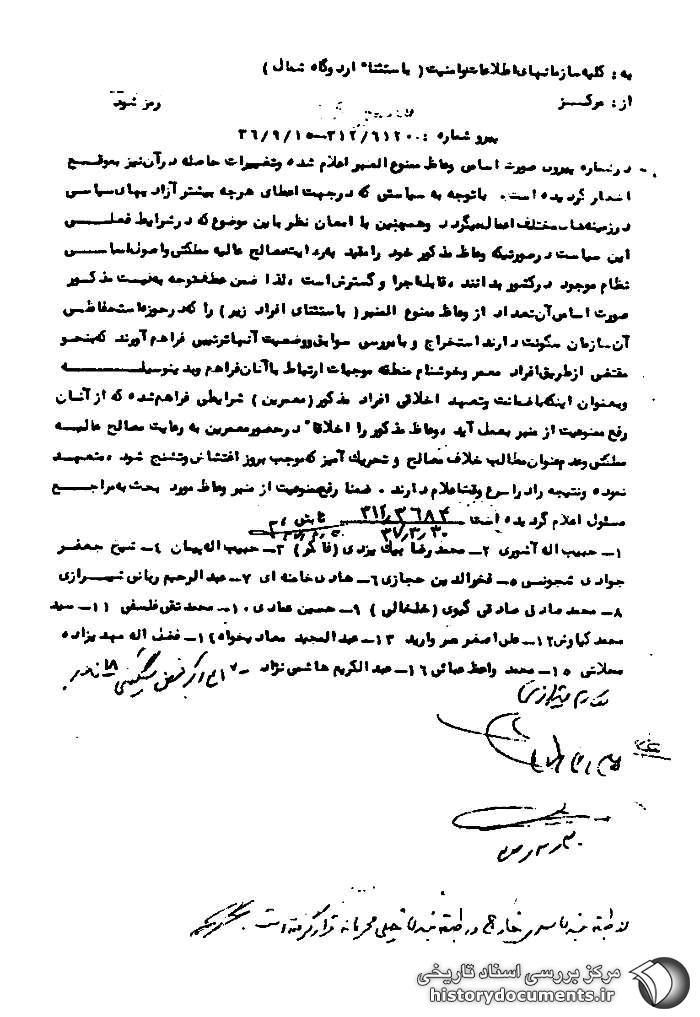 به : کلیه سازمانهای اطلاعات و امنیت ( باستثناء اردوگاه شمال )
از : مرکز رمز شود
پیرو شماره : ۳۱۲/۶۱۲۰۰ـ۳۶/۹/۱۵
در شماره پیروی صورت اسامی وعاظ ممنوع المنبر اعلام شده و تغییرات حاصله در آن نیز بموقع
اشعار گردیده است . باتوجه به سیاستی که در جهت اعطای هرچه بیشتر آزادیهای سیاسی
در زمینه های مختلف اعمال میگردد وهمچنین با امعان نظر باین موضوع که در شرایط فعلی
این سیاست در صورتیکه وعاظ مذکور خود را مقید به رعایت مصالح عالیه مملکتی واصول اساسی
نظام موجود درکشور بدانند ، قابل اجرا و گسترش است ، لذا ضمن عطف توجه به لیست مذکور
صورت اسامی آن تعداد از وعاظ ممنوع المنبر ( باستثنای افراد زیر ) را که در حوزه استحفاظی
آن سازمان سکونت دارند استخراج و با بررسی سوابق ووضعیت آنها ترتیبی فراهم آورند که بنحو
مقتضی ازطریق افراد معمر وخوشنام منطقه موجبات ارتباط با آنان فراهم وبدینوسیله
وبعنوان اینکه باضمانت وتعهد اخلاقی افراد مذکور ( معمرین ) شرایطی فراهم شده که از آنان
رفع ممنوعیت از منبر بعمل آید ، وعاظ مذکور را اخلاقا" در حضور معمرین به رعایت مصالح عالیه
مملکتی وعدم عنوان مطالب خلاف مصالح و تحریک آمیز که موجب بروز اغتشاش وتشنج شود ، متعهد
نموده ونتیجه را در اسرع وقت اعلام دارند . ضمنا رفع ممنوعیت از منبر وعاظ مورد بحث به مراجع
مسئول اعلام گردیده است ۳۱۲/۳۶۸۴ ثابتی
۳۷/۳/۳۰
۱ـ حبیب اله آشوری ۲ـ محمد رضا بیک یزدی (فاکر) ۳ـ حبیب اله پیمان ۴ـ شیخ جعفر
جوادی شجونی ۵ـ فخرالدین حجازی ۶ـ هادی خامنه ای ۷ـ عبدالرحیم ربانی شیرازی
۸ـ محمد صادق صادقی گیوی (خلخالی ) ۹ـ حسین عمادی ۱۰ـ محمد تقی فلسفی ۱۱ـ سید
محمد کیاوش ۱۲ـ علی اصغر مروارید ۱۳ـ عبدالمجید معادیخواه ۱۴ـ فضل اله مهدیزاده
محلاتی ۱۵ـ محمد واعظ عبائی ۱۶ـ عبدالکریم هاشمی نژاد ۱۷
مکارم شیرازی
مرکز بررسی اسناد تاریخی
historydocuments.ir